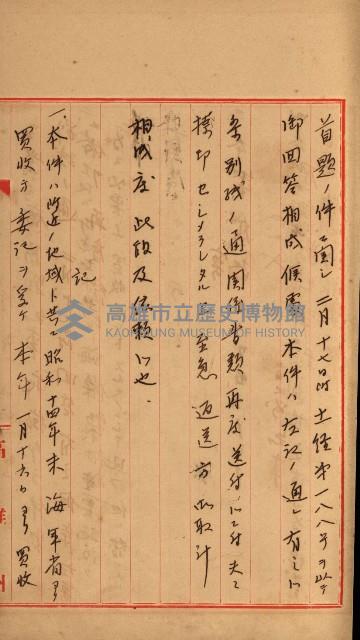 首題ノ件ニ関シ二月十七日附土経第一八八号ヲ以テ
御回答相成候處本件ハ左記ノ通ニ有之ニ
条別紙ノ通関係書類再度送付ニ付夫々
捺印セシメラレタル上至急返送方御取計
相成度此段及依頼候也
記
一、本件ハ附近ノ地域ト共ニ昭和十四年末海軍省ヨリ
買收方委託ヲ受ケ本年一月十六日ヨリ買收
高雄市立歷史博物館
KAOHSIUNG MUSEUM OF HISTORY
雄
州